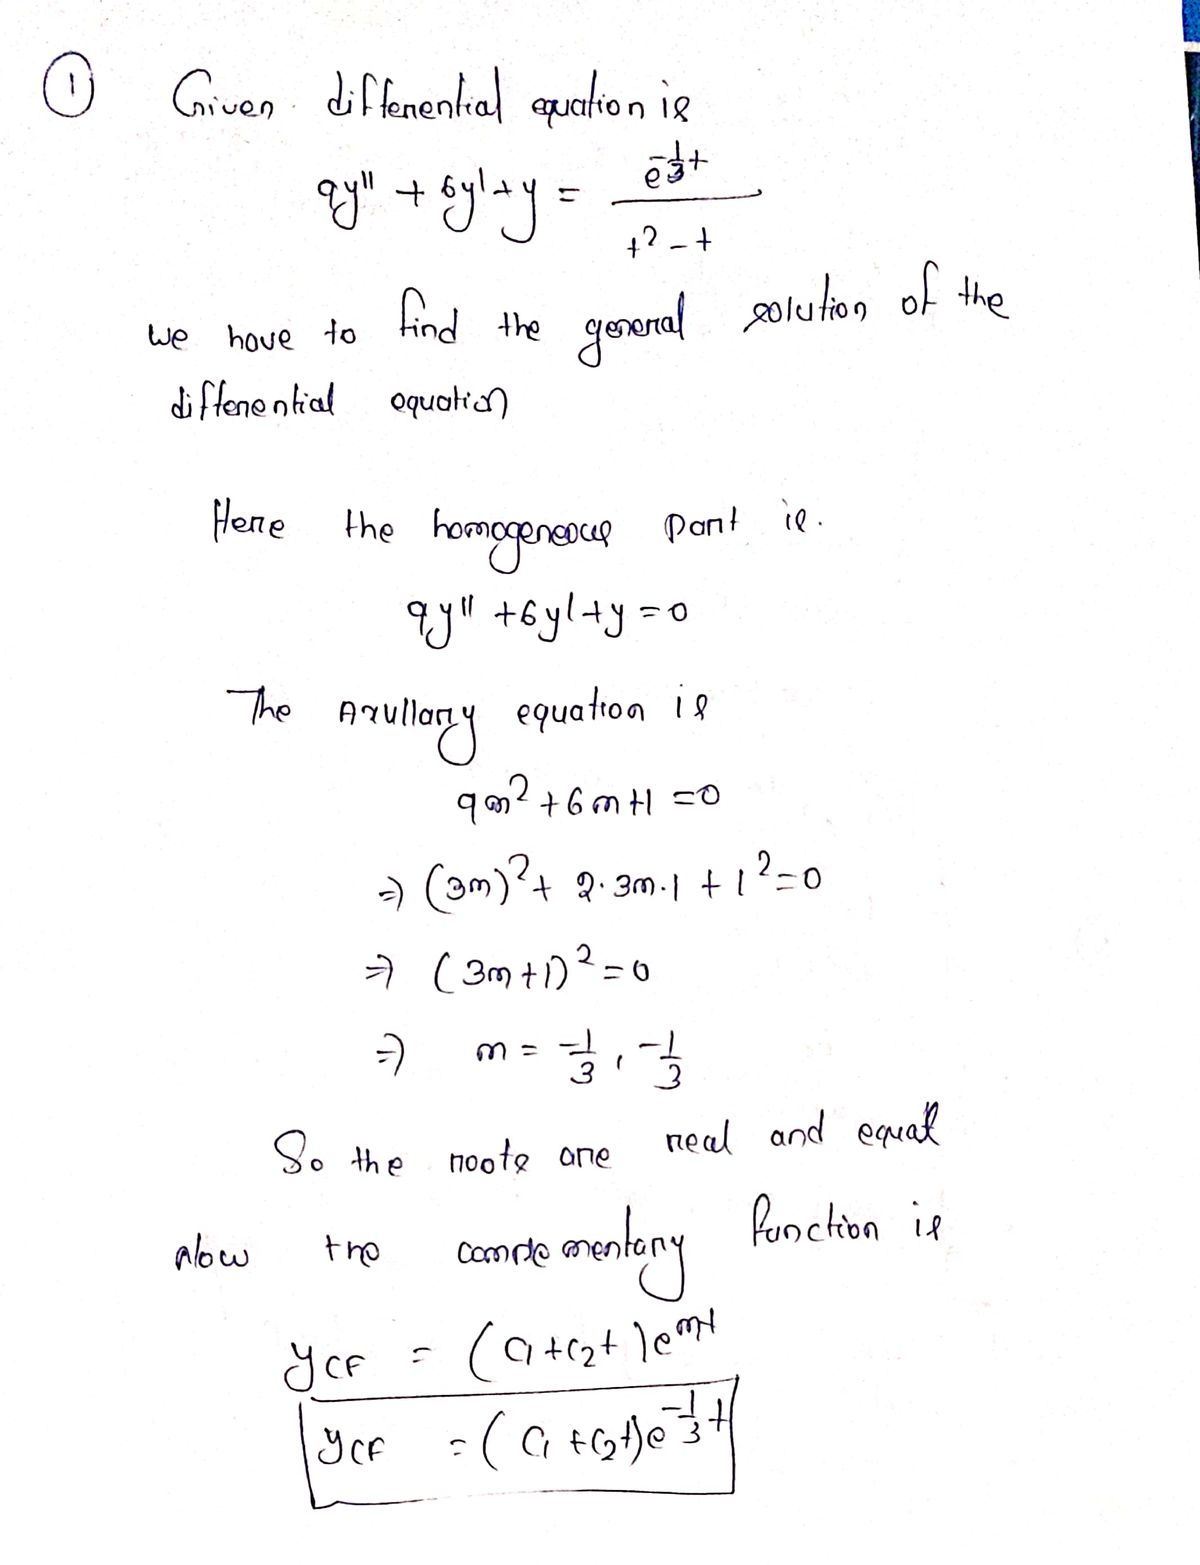 ① Given differential equation is
9y'' + 6y' + y = e^{-1/3 t} / (t² - t)
we have to find the general solution of the
differential equation
Here the homogeneous part is.
9y'' + 6y' + y = 0
The Axullary equation is
9m² + 6m + 1 = 0
⇒ (3m)² + 2·3m·1 + 1² = 0
⇒ (3m+1)² = 0
⇒ m = -1/3, -1/3
So the roots are real and equal
Now the complementary function is
y_CF = (c₁ + c₂t)e^{mt}
y_CF = (c₁ + c₂t)e^{-1/3 t}